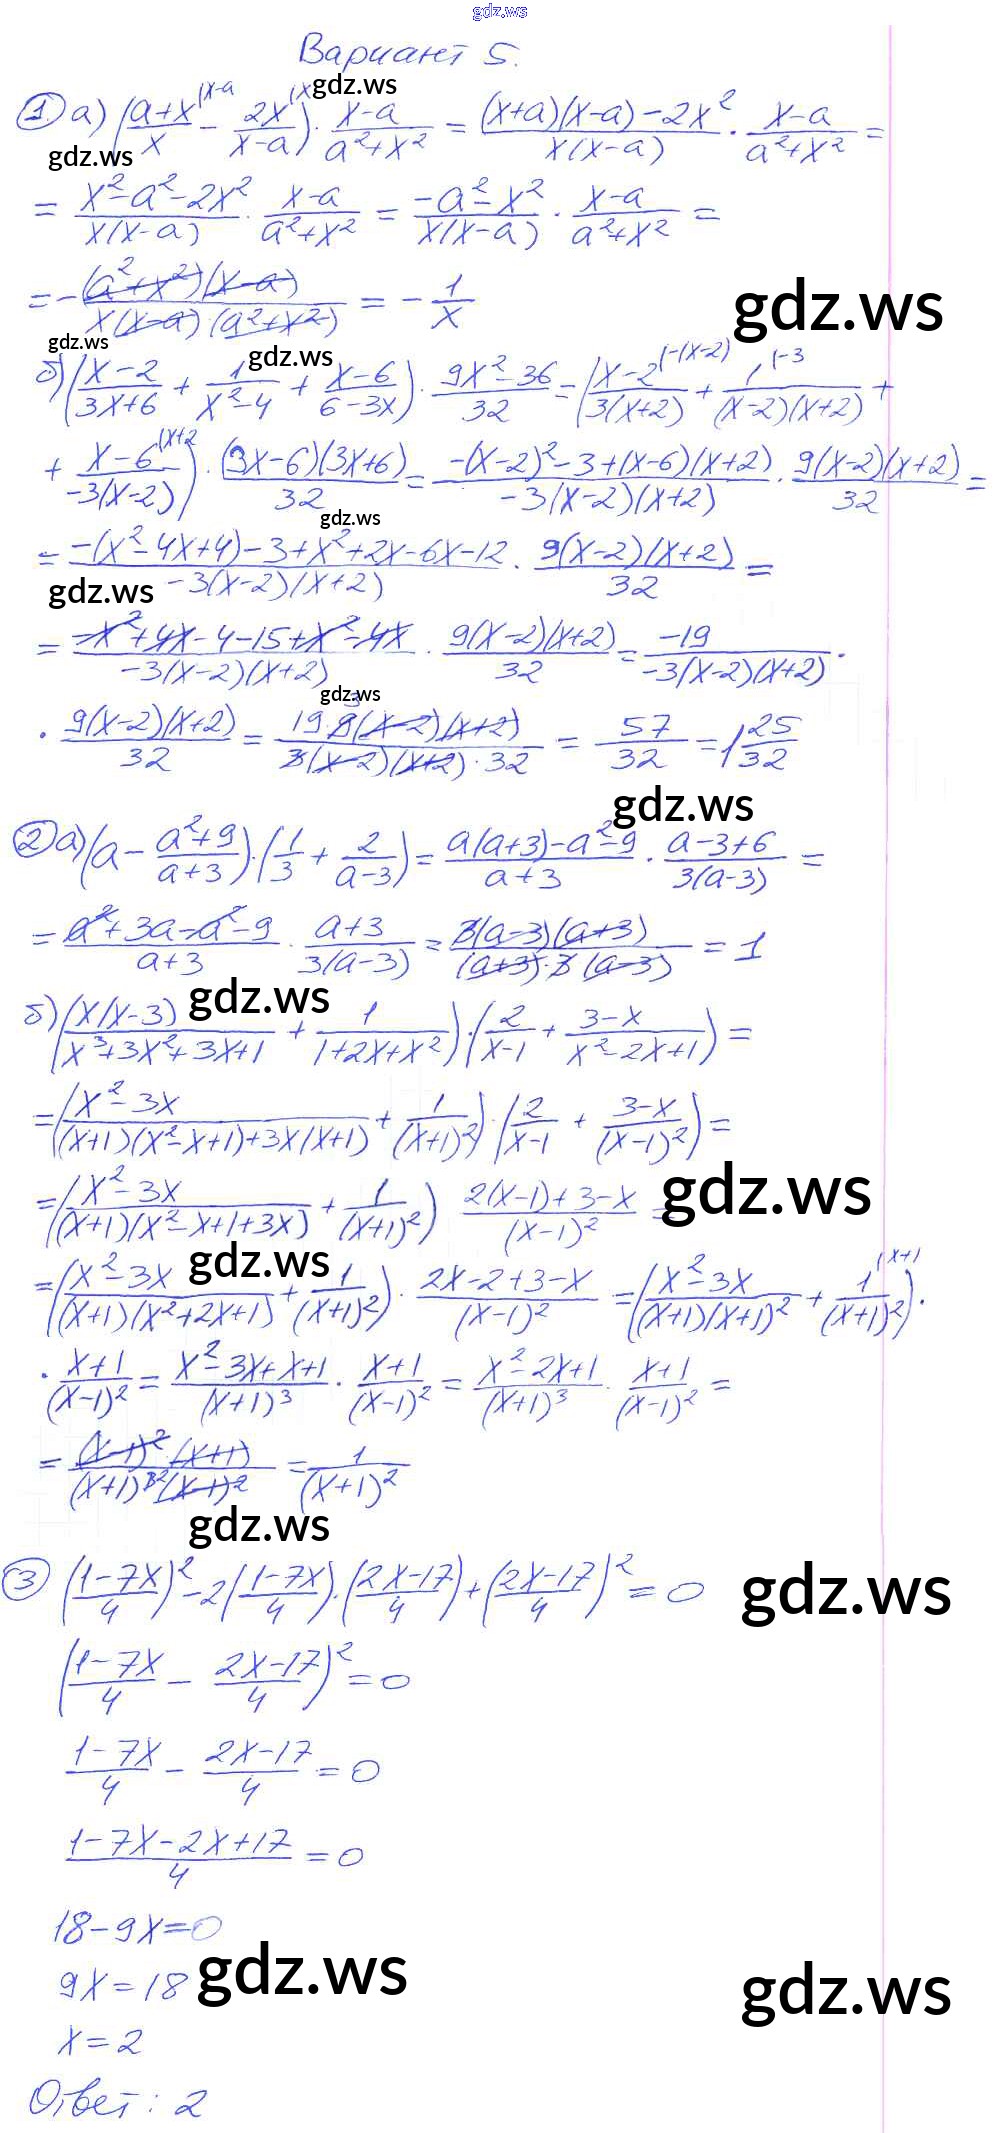 gdz.ws
Вариант 5.
gdz.ws
1 а) ((a+x)/x^(x-a) - 2x/(x-a)^(x) ) · (x-a)/(a²+x²) = ((x+a)(x-a)-2x²)/(x(x-a)) · (x-a)/(a²+x²) =
gdz.ws
= (x²-a²-2x²)/(x(x-a)) · (x-a)/(a²+x²) = (-a²-x²)/(x(x-a)) · (x-a)/(a²+x²) =
= - ((a²+x²)(x-a))/(x(x-a)(a²+x²)) = - 1/x
gdz.ws
gdz.ws
gdz.ws
б) ((x-2)/(3x+6) + 1/(x²-4) + (x-6)/(6-3x)) · (9x²-36)/32 = ((x-2)/(3(x+2))^(-(x-2)) + 1/((x-2)(x+2))^(-3) +
+ (x-6)/(-3(x-2))^(x+2) ) · ((3x-6)(3x+6))/32 = (-(x-2)²-3+(x-6)(x+2))/(-3(x-2)(x+2)) · (9(x-2)(x+2))/32 =
gdz.ws
= (-(x²-4x+4)-3+x²+2x-6x-12)/(-3(x-2)(x+2)) · (9(x-2)(x+2))/32 =
gdz.ws
= (-x²+4x-4-15+x²-4x)/(-3(x-2)(x+2)) · (9(x-2)(x+2))/32 = (-19)/(-3(x-2)(x+2)) ·
gdz.ws
· (9(x-2)(x+2))/32 = (19·9³(x-2)(x+2))/(3(x-2)(x+2)·32) = 57/32 = 1 25/32
gdz.ws
2 а) (a - (a²+9)/(a+3)) · (1/3 + 2/(a-3)) = (a(a+3)-a²-9)/(a+3) · (a-3+6)/(3(a-3)) =
= (a²+3a-a²-9)/(a+3) · (a+3)/(3(a-3)) = (3(a-3)(a+3))/((a+3)·3(a-3)) = 1
gdz.ws
б) ((x(x-3))/(x³+3x²+3x+1) + 1/(1+2x+x²)) · (2/(x-1) + (3-x)/(x²-2x+1)) =
= ((x²-3x)/((x+1)(x²-x+1)+3x(x+1)) + 1/(x+1)²) · (2/(x-1) + (3-x)/(x-1)²) =
= ((x²-3x)/((x+1)(x²-x+1+3x)) + 1/(x+1)²) (2(x-1)+3-x)/(x-1)² =
gdz.ws
gdz.ws
= ((x²-3x)/((x+1)(x²+2x+1)) + 1/(x+1)²) · (2x-2+3-x)/(x-1)² = ((x²-3x)/((x+1)(x+1)²) + 1/(x+1)²^(x+1) ) ·
· (x+1)/(x-1)² = (x²-3x+x+1)/(x+1)³ · (x+1)/(x-1)² = (x²-2x+1)/(x+1)³ · (x+1)/(x-1)² =
= ((x-1)²·(x+1))/((x+1)³²(x-1)²) = 1/(x+1)²
gdz.ws
3 ((1-7x)/4)² - 2((1-7x)/4)·((2x-17)/4) + ((2x-17)/4)² = 0
gdz.ws
((1-7x)/4 - (2x-17)/4)² = 0
(1-7x)/4 - (2x-17)/4 = 0
(1-7x-2x+17)/4 = 0
18-9x=0
gdz.ws
9x=18
gdz.ws
x=2
Ответ: 2